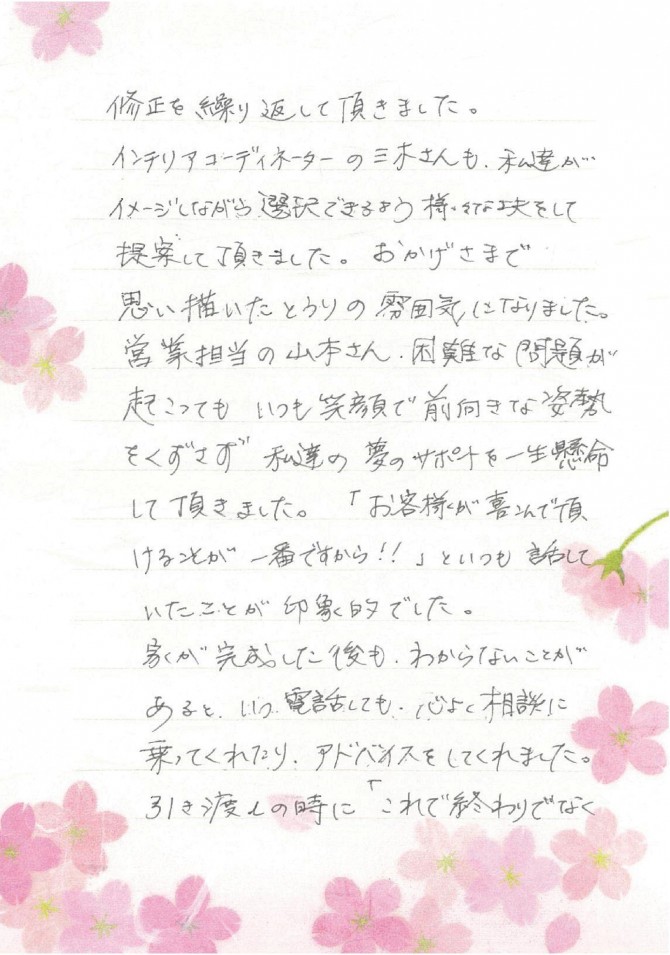 修正を繰り返して頂きました。
インテリアコーディネーターの三木さんも、私達が
イメージしながら選択できるよう様々な工夫をして
提案して頂きました。おかげさまで
思い描いたとうりの雰囲気になりました。
営業担当の山本さん、困難な問題が
起こっても いつも笑顔で前向きな姿勢
をくずさず 私達の夢のサポートを一生懸命
して頂きました。「お客様が喜こんで頂
けることが 一番ですから!!」といつも 話して
いたことが 印象的でした。
家が完成した後も、わからないことが
あると、いつ電話しても、心よく相談に
乗ってくれたり、アドバイスをしてくれました。
引き渡しの時に「これで終わりでなく